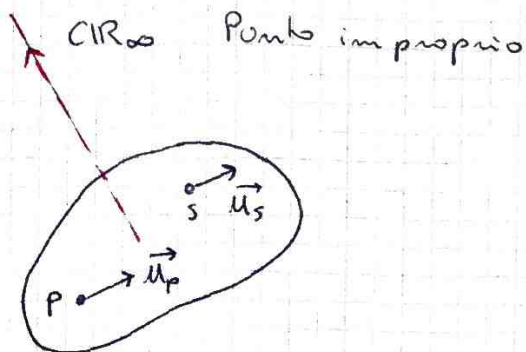 CIR∞ Punto improprio
S u⃗s
P u⃗p